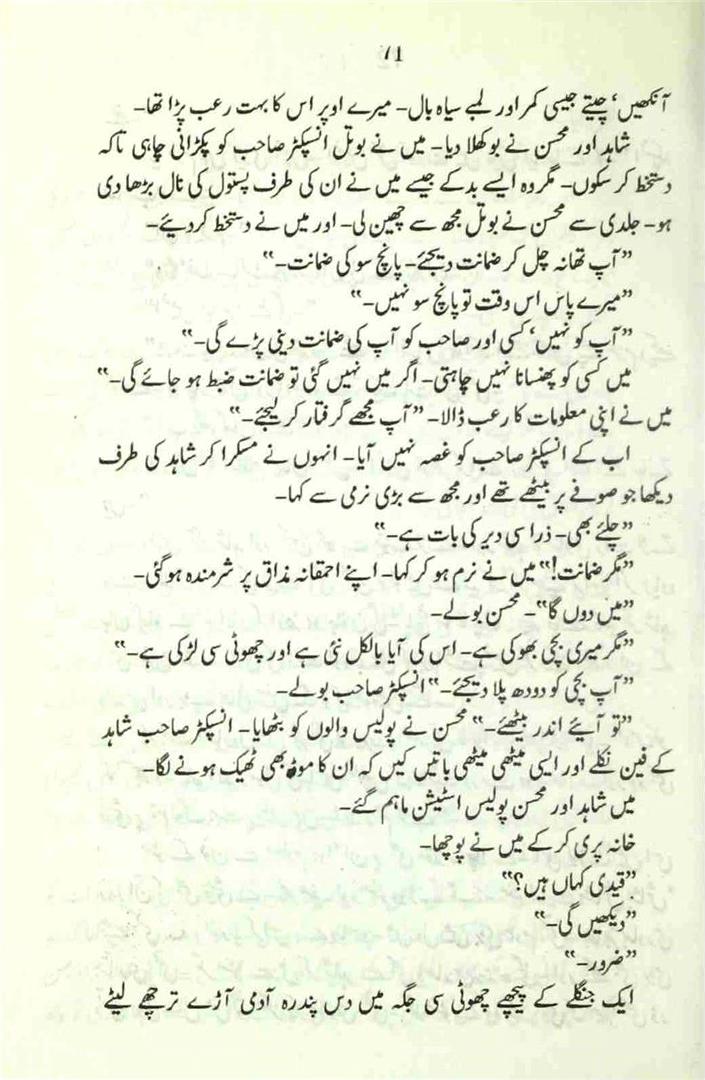 71
آنکھیں‘ چیتے جیسی کمر اور لمبے سیاہ بال۔ میرے اوپر اس کا بہت رعب پڑا تھا۔
شاہد اور محسن نے بوکھلا دیا۔ میں نے بوتل انسپکٹر صاحب کو پکڑانی چاہی تاکہ
دستخط کر سکوں۔ مگر وہ ایسے بدکے جیسے میں نے ان کی طرف پستول کی نال بڑھا دی
ہو۔ جلدی سے محسن نے بوتل مجھ سے چھین لی۔ اور میں نے دستخط کر دیئے۔
”آپ تھانہ چل کر ضمانت دیجئے۔ پانچ سو کی ضمانت۔“
”میرے پاس اس وقت تو پانچ سو نہیں۔“
”آپ کو نہیں‘ کسی اور صاحب کو آپ کی ضمانت دینی پڑے گی۔“
میں کسی کو پھنسانا نہیں چاہتی۔ اگر میں نہیں گئی تو ضمانت ضبط ہو جائے گی۔“
میں نے اپنی معلومات کا رعب ڈالا۔ ”آپ مجھے گرفتار کر لیجئے۔“
اب کے انسپکٹر صاحب کو غصہ نہیں آیا۔ انہوں نے مسکرا کر شاہد کی طرف
دیکھا جو صوفے پر بیٹھے تھے اور مجھ سے بڑی نرمی سے کہا۔
”چلئے بھی۔ ذرا سی دیر کی بات ہے۔“
”مگر ضمانت!“ میں نے نرم ہو کر کہا۔ اپنے احمقانہ مذاق پر شرمندہ ہو گئی۔
”میں دوں گا“۔ محسن بولے۔
”مگر میری بچی بھوکی ہے۔ اس کی آیا بالکل نئی ہے اور چھوٹی سی لڑکی ہے۔“
”آپ بچی کو دودھ پلا دیجئے۔“ انسپکٹر صاحب بولے۔
”تو آیئے اندر بیٹھئے۔“ محسن نے پولیس والوں کو بٹھایا۔ انسپکٹر صاحب شاہد
کے فین نکلے اور ایسی میٹھی میٹھی باتیں کیں کہ ان کا موڈ بھی ٹھیک ہونے لگا۔
میں شاہد اور محسن پولیس اسٹیشن ماہم گئے۔
خانہ پری کر کے میں نے پوچھا۔
”قیدی کہاں ہیں؟“
”دیکھیں گی۔“
”ضرور۔“
ایک جنگلے کے پیچھے چھوٹی سی جگہ میں دس پندرہ آدمی آڑے ترچھے لیٹے